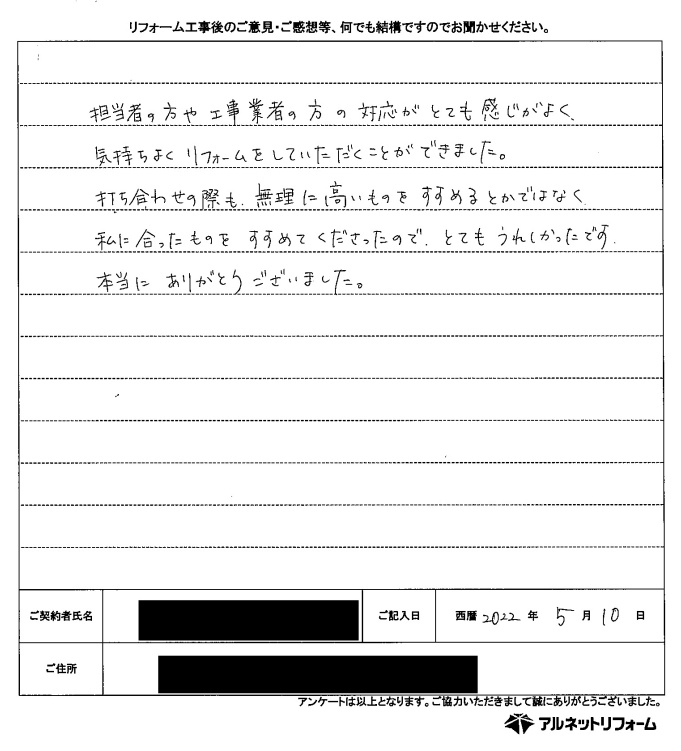 リフォーム工事後のご意見・ご感想等、何でも結構ですのでお聞かせください。
担当者の方や工事業者の方の対応がとても感じがよく、
気持ちよくリフォームをしていただくことができました。
打ち合わせの際も、無理に高いものをすすめるとかではなく
私に合ったものをすすめてくださったので、とてもうれしかったです。
本当にありがとうございました。
ご契約者氏名 ご記入日 西暦 2022 年 5 月 10 日
ご住所
アンケートは以上となります。ご協力いただきまして誠にありがとうございました。
アルネットリフォーム